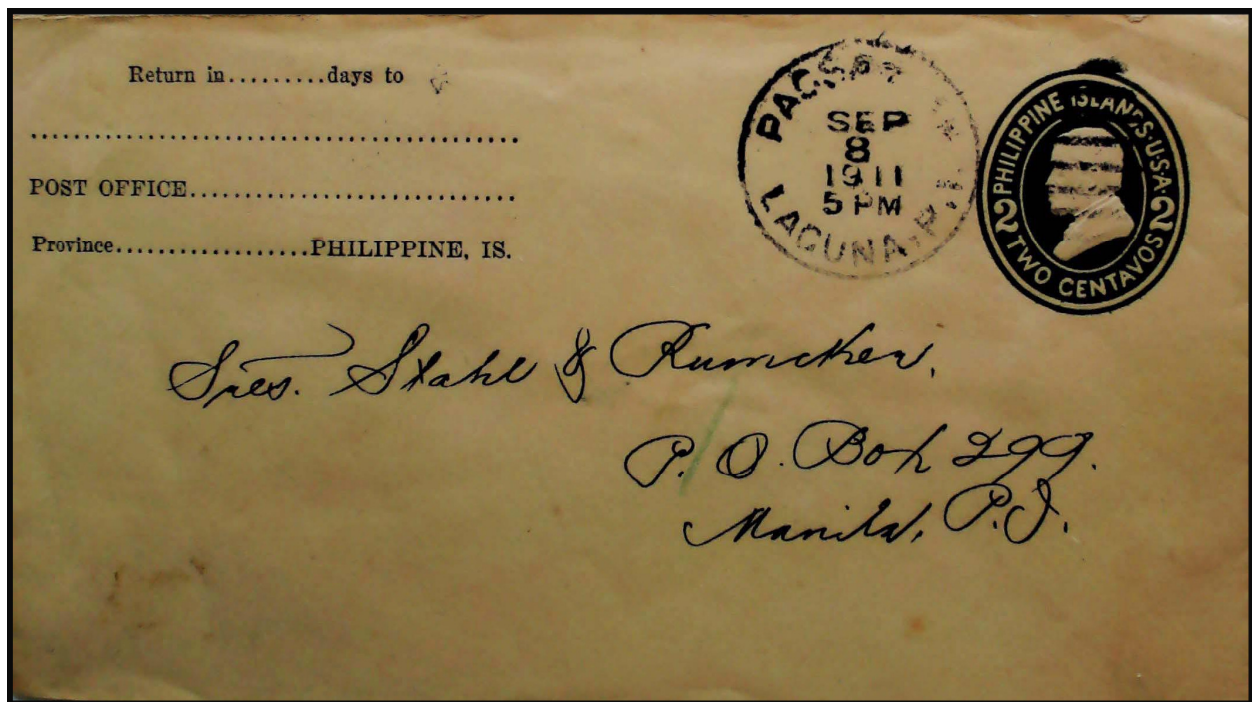 Return in.........days to
POST OFFICE
Province..................PHILIPPINE, IS.
SEP
8
1911
5 PM
LAGUNA, P.I.
PHILIPPINE ISLANDS·U·S·A
2 TWO CENTAVOS 2
Sres. Stahl & Rumcker,
P. O. Box 299.
Manila, P.I.